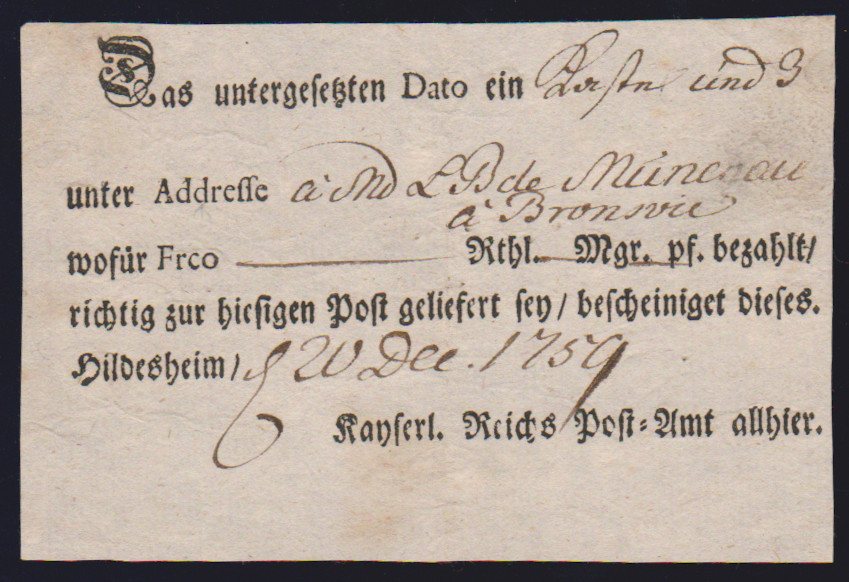 Das untergesetzten Dato ein Kiste und 3
unter Addresse à Md L B de
à Bronsvic
wofür Frco Rthl. Mgr. pf. bezahlt/
richtig zur hiesigen Post geliefert sey/ bescheiniget dieses.
Hildesheim/ 20 Dec. 1759
Kayserl. Reichs Post=Amt allhier.